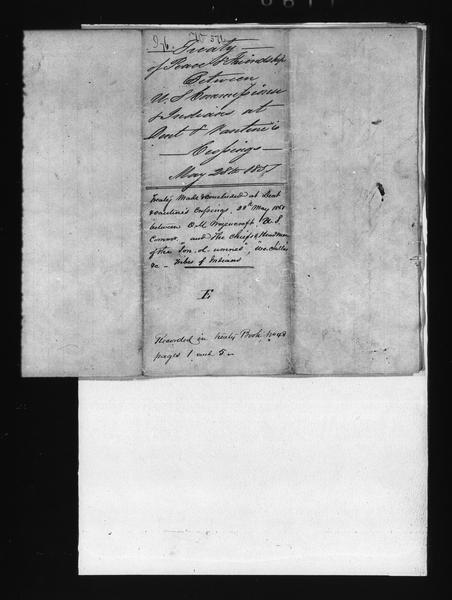 Treaty
of Peace & Friendship
Between
U. S Commissioner
& Indians at
Dent & Vantine's
Crossings
May 28th 1851
Treaty Made & concluded at Dent
& Vantine's Crossings, 28th May 1851
between O. M. Wozencraft U. S.
Commr. and the chiefs & Head men
of the Iou. ol. umnes, We. chilles
&c - Tribes of Indians
E
Recorded in treaty Book No 48
pages 1 and 5